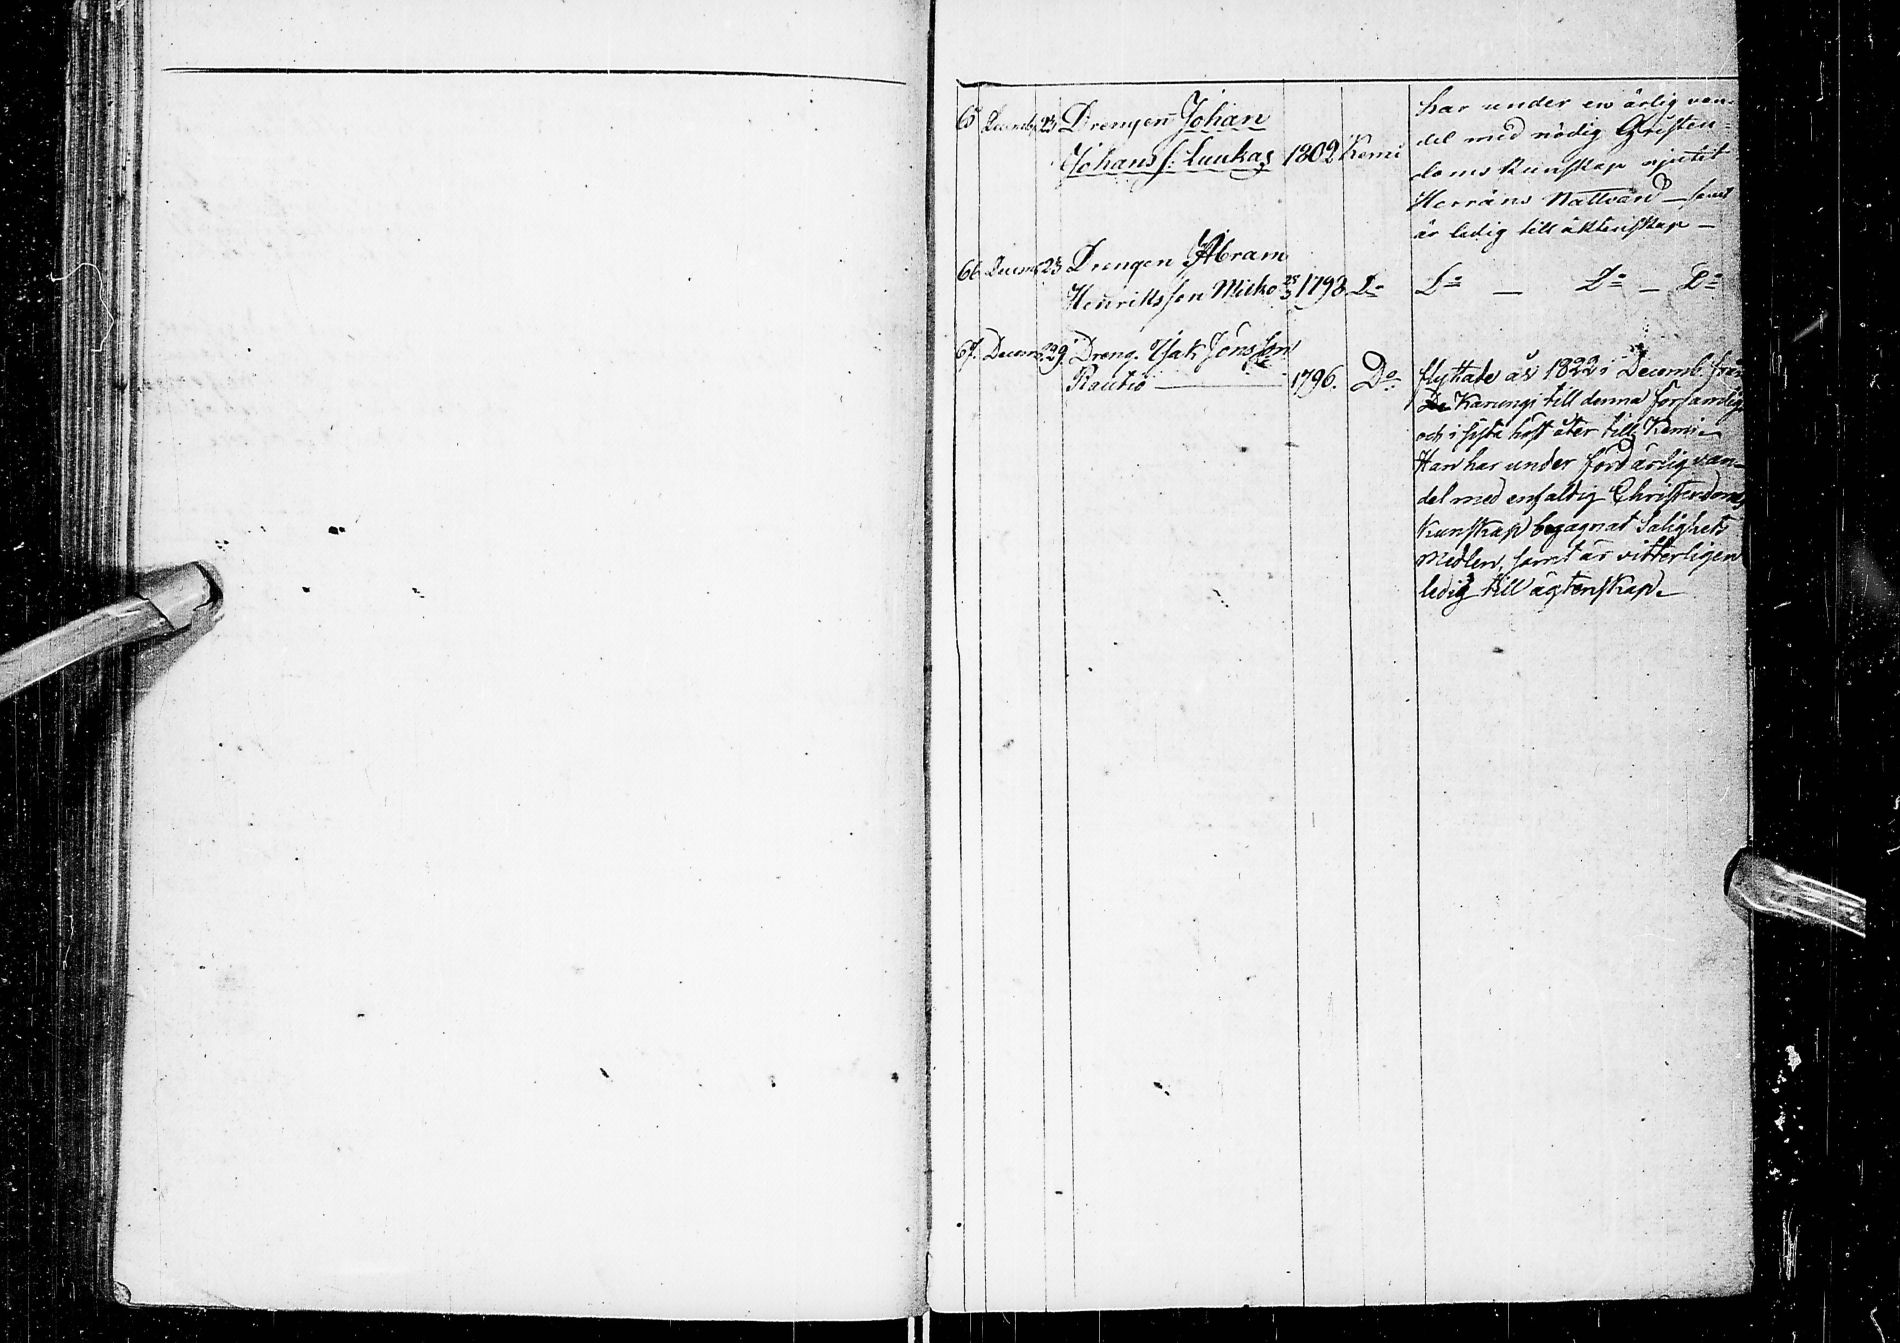 65 Decemb. 23 Drengen Johan har under en ärlig van-
Johans s. Luukas 1802 Kemi del med nödig Christen-
doms kunskap njutit
Herrans Nattvard – samt
är ledig till äktenskap –
66 Decemb. 23 Drengen Abram
Henriksson Mikko 1793 Do Do – Do – Do
67. Decemb. 29. Dreng. Isak Jönsson flyttade år 1822 i Decemb. från
Rautio 1796. Do Karungi till denna församling
och i sista höst åter till Kemi.
Han har under förd ärlig van-
del med enfaldig Christendoms
kunskap begagnat Salighets
Medlen, samt är vitterligen
ledig till ägtenskap.